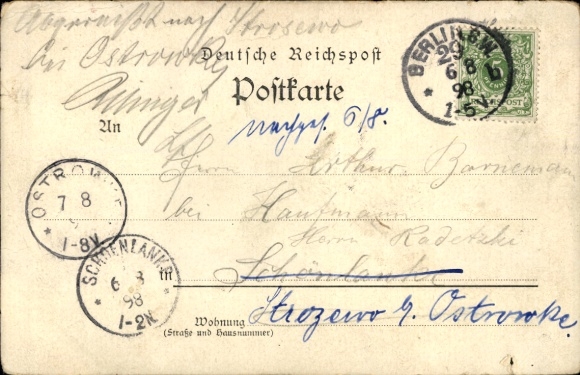 Abgereist nach Strosewo
bei Ostrowke
Deutsche Reichspost
Postkarte
An
nachges. 6/8.
Herrn Arthur Borneman
bei Kaufmann
Herrn Radetzki
in Schönlanke
Strozewo b. Ostrowke
Wohnung
(Straße und Hausnummer)
BERLIN S.W.
29
6 8
98
1-5N
b
5
REICHSPOST
OSTROWKE
7 8
1-8V
SCHOENLANKE
6 8
98
1-2N